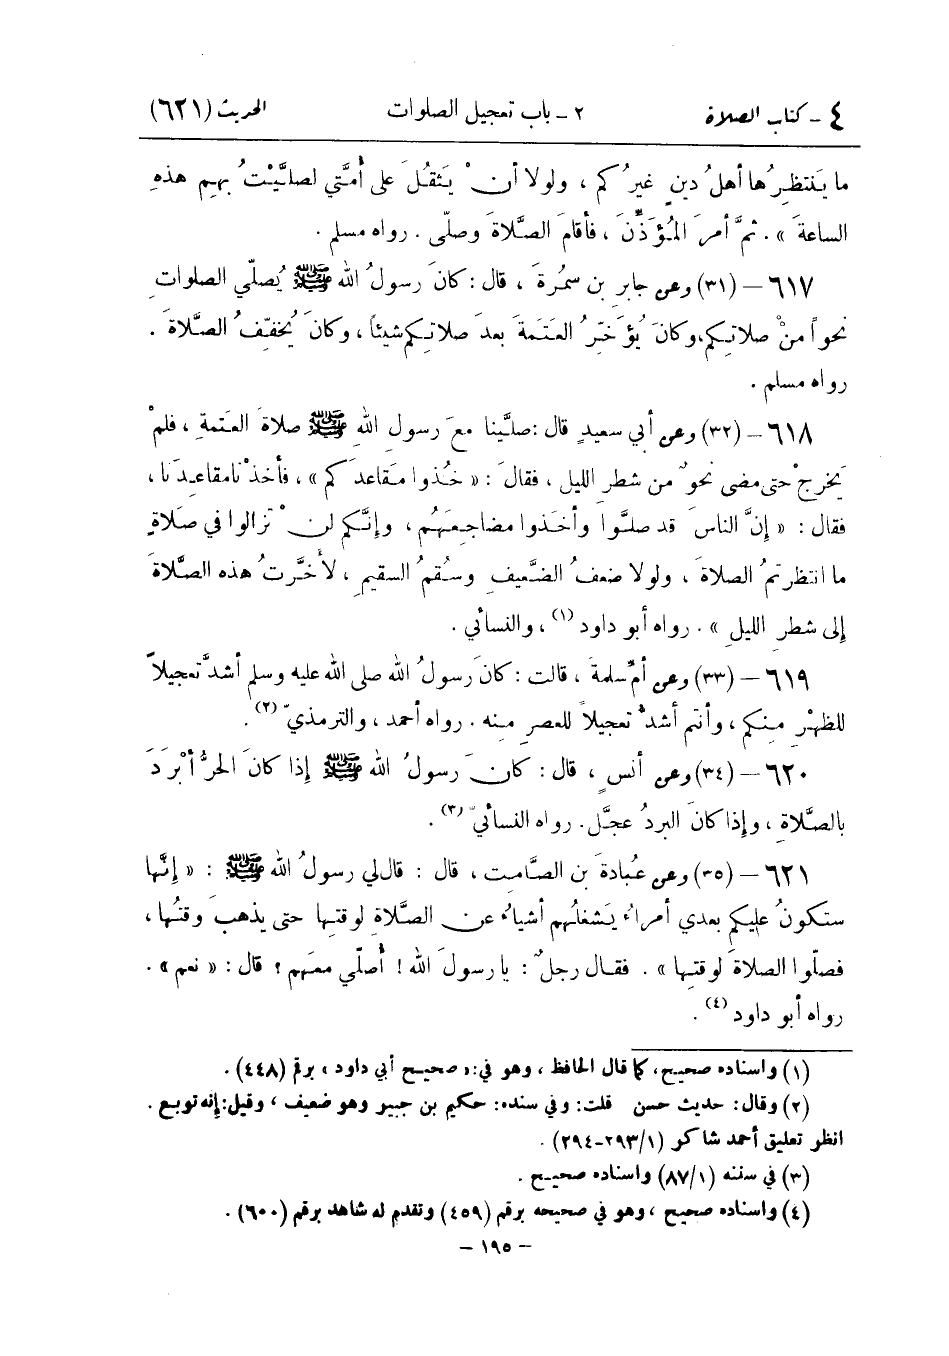 ٤ - كتاب الصلاة ٢ - باب تعجيل الصلوات الحديث (٦٢١)
ما يَنتظِرُها أهلُ دينٍ غيرُكم ، ولولا أنْ يَثقُلَ على أمَّتي لصليَّيْتُ بهِم هذه
الساعةَ » . ثمَّ أمرَ المُؤَذِّنَ ، فأقامَ الصَّلاةَ وصلّى . رواه مسلم .
٦١٧ - (٣١) وعن جابرِ بن سمُرةَ ، قال : كانَ رسولُ الله ﷺ يُصلّي الصلواتِ
نحواً منْ صلاتِكم، وكانَ يُؤخِّرُ العتَمَةَ بعدَ صلاتِكم شيئاً ، وكانَ يُخفِّفُ الصَّلاةَ .
رواه مسلم .
٦١٨ - (٣٢) وعن أبي سعيدٍ قال : صلَّينا معَ رسولِ اللهِ ﷺ صلاةَ العتَمةِ ، فلمْ
يَخرجْ حتى مضى نحوٌ من شطرِ الليل ، فقالَ : « خُذوا مَقاعدَكم » ، فأخذْنا مقاعِدَنا ،
فقال : « إنَّ الناسَ قد صلَّوا وأخَذوا مضاجِعَهُم ، وإنَّكم لنْ تزالوا في صَلاةٍ
ما انتظرتمُ الصلاةَ ، ولولا ضعفُ الضَّعيفِ وسُقمُ السقيمِ ، لأخَّرتُ هذه الصَّلاةَ
إلى شطرِ الليلِ » . رواه أبو داود (١) ، والنسائي .
٦١٩ - (٣٣) وعن أمِّ سلمةَ ، قالت : كانَ رسولُ الله صلى الله عليه وسلم أشدَّ تعجيلاً
للظهْرِ مِنكم ، وأنتم أشدُّ تعجيلاً للعصرِ مِنه . رواه أحمد ، والترمذيّ (٢) .
٦٢٠ - (٣٤) وعن أنسٍ ، قال : كانَ رسولُ الله ﷺ إذا كانَ الحرُّ أبْرَدَ
بالصَّلاةِ ، وإذا كانَ البردُ عجَّل . رواه النسائيّ (٣) .
٦٢١ - (٣٥) وعن عُبادةَ بنِ الصَّامتِ ، قال : قال لي رسولُ الله ﷺ : « إنَّها
ستكونُ عليكم بعدي أمراءُ يَشغلُهم أشياءُ عن الصَّلاةِ لوقتِها حتى يذهبَ وقتُها ،
فصلّوا الصلاةَ لوقتِها » . فقال رجلٌ : يا رسولَ الله ! أُصلّي معَهم ؟ قال : « نعم » .
رواه أبو داود (٤) .
(١) واسناده صحيح ، كما قال الحافظ ، وهو في : « صحيح أبي داود » برقم (٤٤٨) .
(٢) وقال : حديث حسن قلت : وفي سنده : حكيم بن جبير وهو ضعيف ، وقيل : إنه توبع .
انظر تعليق أحمد شاكر (٢٩٣/١-٢٩٤) .
(٣) في سننه (٨٧/١) واسناده صحيح .
(٤) واسناده صحيح ، وهو في صحيحه برقم (٤٥٩) وتقدم له شاهد برقم (٦٠٠) .
- ١٩٥ -